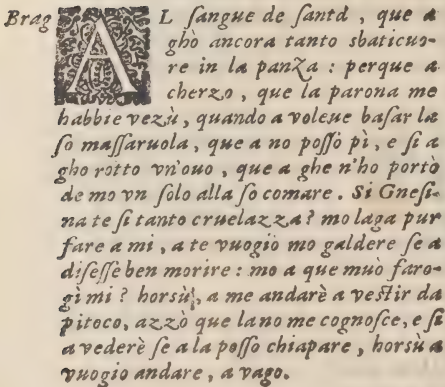 Brag AL ſangue de ſantd , que a
ghò ancora tanto sbaticuo-
re in la panza : perque a
cherzo , que la parona me
habbie vezù , quando a voleue baſar la
ſo maſſaruola , que a no poſſo pì , e ſi a
gho rotto vn'ouo , que a ghe n'ho portò
de mo vn ſolo alla ſo comare . Si Gneſi-
na te ſi tanto cruelazza ? mo laga pur
fare a mi , a te vuogio mo galdere ſe a
diſeſſe ben morire : mo a que muò faro-
gi mi ? horsù , a me andarè a veſtir da
pitoco, azzò que la no me cognoſce, e ſi
a vederè ſe a la poſſo chiapare , horsù a
vuogio andare , a vago.